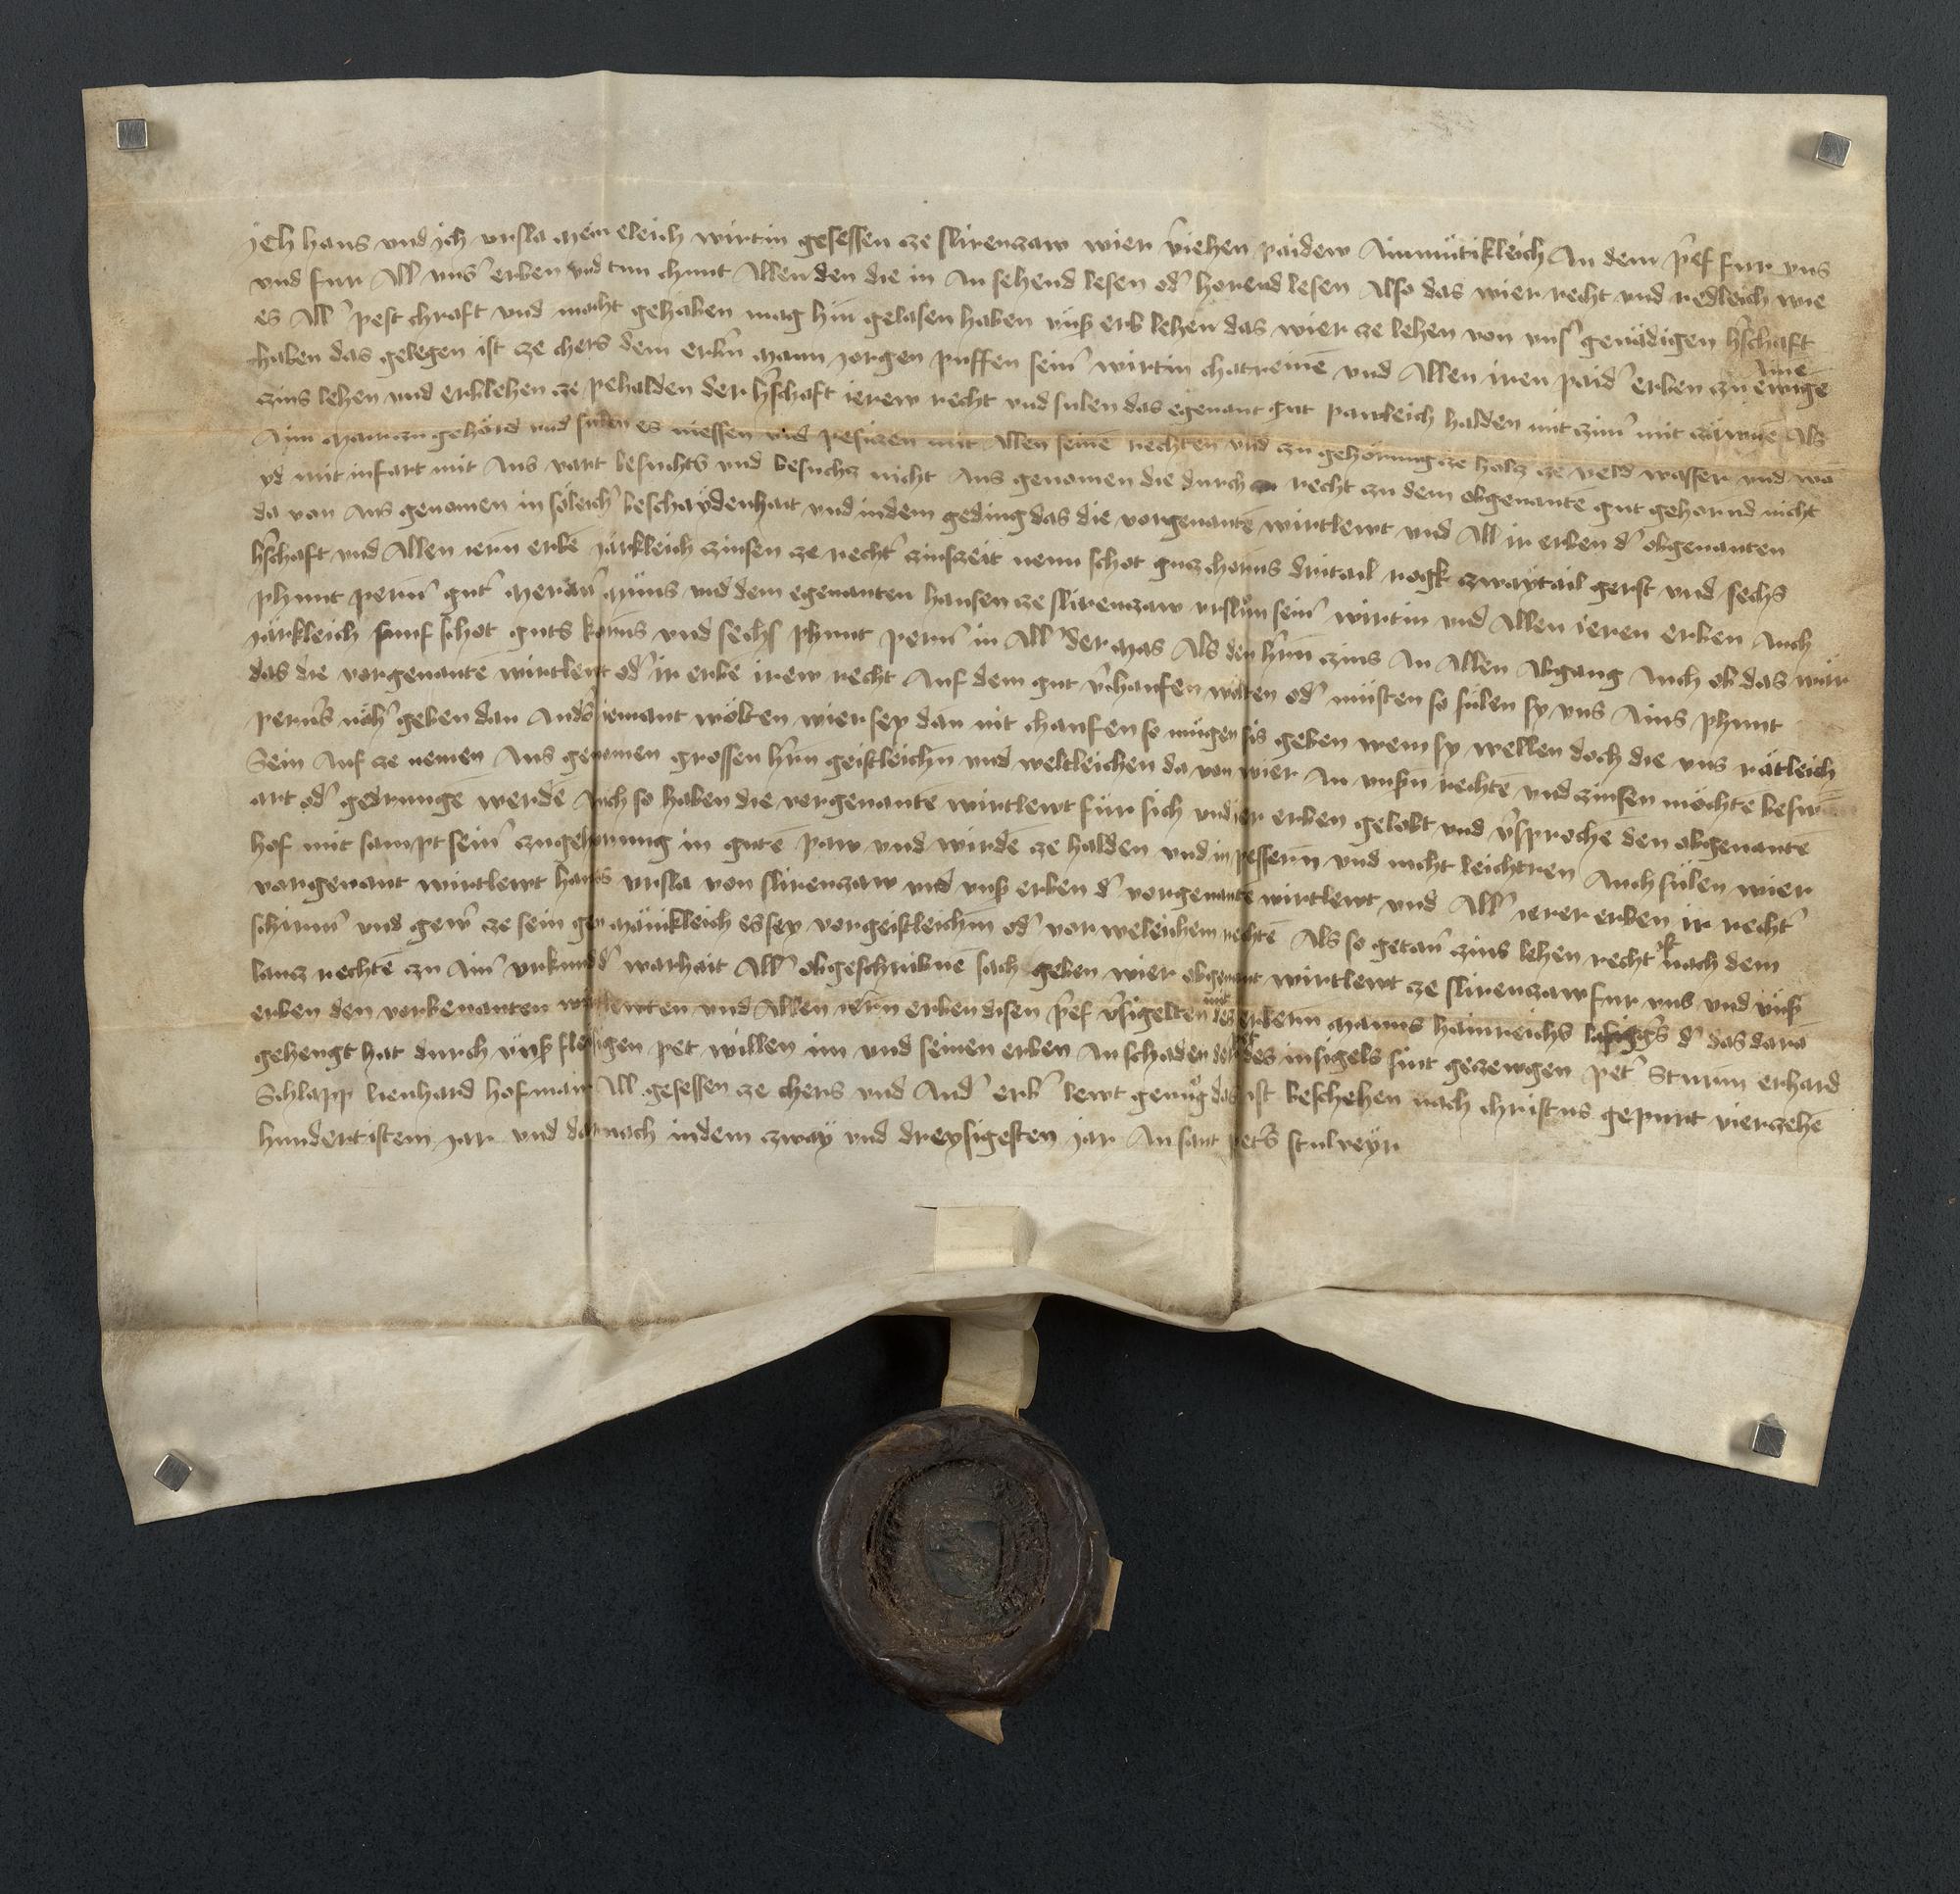 jch hans vnd jch vrsla mein eleich wirtin gesessen ze slirenzaw wier v̄iehen paidew Ainmütikleich An dem p̄ef fur vns
vnd fur All vns̄ erben vnd tun chunt Allen den die in An sehend lesen od̄ horend lesen Also das wier recht vnd redleich wie
es All̄ pest chraft vnd macht gehaben mag hin gelasen haben vnsz̄ erb lehen das wier ze lehen von vns̄ genädigen h̄schaft
haben das gelegen ist ze chers dem erb̄n mann jorgen puffen sein̄ wirtin chatreinē vnd Allen iren paid̄ erben zu Aine ewigē
zins lehen vnd erblehen ze pehalden der h̄schaft ierew recht vnd sulen das egenant gut pauleich halden mit zim̄ mit zäwnē Als
Aim mair zu gehörd vnd sulen es niessen vnd pesizen mit Allen seinē rechten vnd zu gehörung ze holz ze veld wasser vnd wā
vd mit infart mit Aus vart besuchts vnd besuchz nicht Aus genomen die durch recht zu dem obgenante gut gehornd nicht
da von Aus genomen in söleich̄ beschaÿdenhait vnd indem geding das die vorgenantē wirtlewt vnd All ir erben d̄ obgenanten
h̄schaft vnd Allen iern̄ erbē järkleich zinsen ze recht̄ zinszeit nenn schot guz chorns dritail rogk zwaÿtail gerst vnd sechs
phunt pern̄ gut̄ meran̄ müns vnd dem egenanten hansen ze slirenzaw vrslan sein̄ wirtin vnd Allen ieren erben Auch
järkleich funf schot guts korns vnd sechs phunt pern̄ in All̄ der mas Als den h̄rn zins An Allen Abgang Auch ob das wär
das die vorgenantē wirtlewt od̄ ir erbē irew recht Auf dem gut v̄chaufen wolten od̄ müsten so sülen sy vns Ains phunt
pern̄s näh̄ geben dan And̄s iemant wölten wier sey dan nit chaufen so mügen sis geben wem sy wellen doch die vns rätleich
Sein Auf ze nemen Aus genomen grossen h̄rn geistleichn̄ vnd weltleichen da von wier An vnsz̄n rechtē vnd zinsen möchtē besw
art od̄ gedrungē werdē Auch so haben die vorgenantē wirtlewt für sich vnd ier erben gelobt vnd v̄sprochē den obgenantē
hof mit sampt sein̄ zugehörung in gutē paw vnd wirdē ze halden vnd in pessern̄ vnd nicht leichtren Auch sülen wier
vorgenant wirtlewt hans vrsla von slirenzaw vnd vnsz̄ erben d̄ vorgenantē wirtlewt vnd All̄ ierer erben ir recht̄
schirm̄ vnd gew̄ ze sein gen mänikleich es sey vor geistleichm̄ od̄ vor weleichem rechtē Als so getan̄ zins lehen recht ist nach dem
lanz rechtē zu Ain̄ vrkund d̄ warhait All̄ obgeschribnē sach geben wier obgenant wirtlewt ze slirenzaw fur vns vnd vnsz̄
erben den vorbenanten wirtlewten vnd Allen iern̄ erben disen p̄ef v̄sigelten mit des erbern manns hainreichs d̄ das darā
gehengt hat durch vnsz̄ flessigen pet willen im vnd seinen erben An schaden des insigels sint gezewgen pet̄ Sturm erhard
Schlapp lienhard hofmair All gesessen ze chers vnd And̄ erb̄ lewt genug das ist beschehen nach christus gepurt vierzehē
hundertistem jar vnd darnach indem zwaÿ vnd dreysigesten jar An sant pet̄s stulveÿr